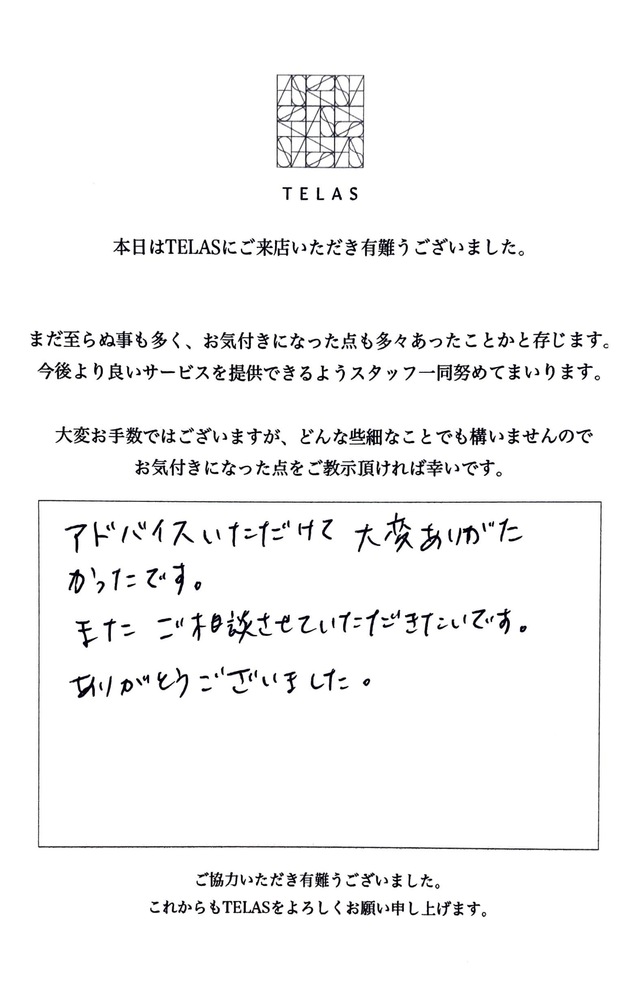 TELAS
本日はTELASにご来店いただき有難うございました。
まだ至らぬ事も多く、お気付きになった点も多々あったことかと存じます。
今後より良いサービスを提供できるようスタッフ一同努めてまいります。
大変お手数ではございますが、どんな些細なことでも構いませんので
お気付きになった点をご教示頂ければ幸いです。
アドバイスいただけて 大変ありがた
かったです。
また ご相談させていただきたいです。
ありがとうございました。
ご協力いただき有難うございました。
これからもTELASをよろしくお願い申し上げます。